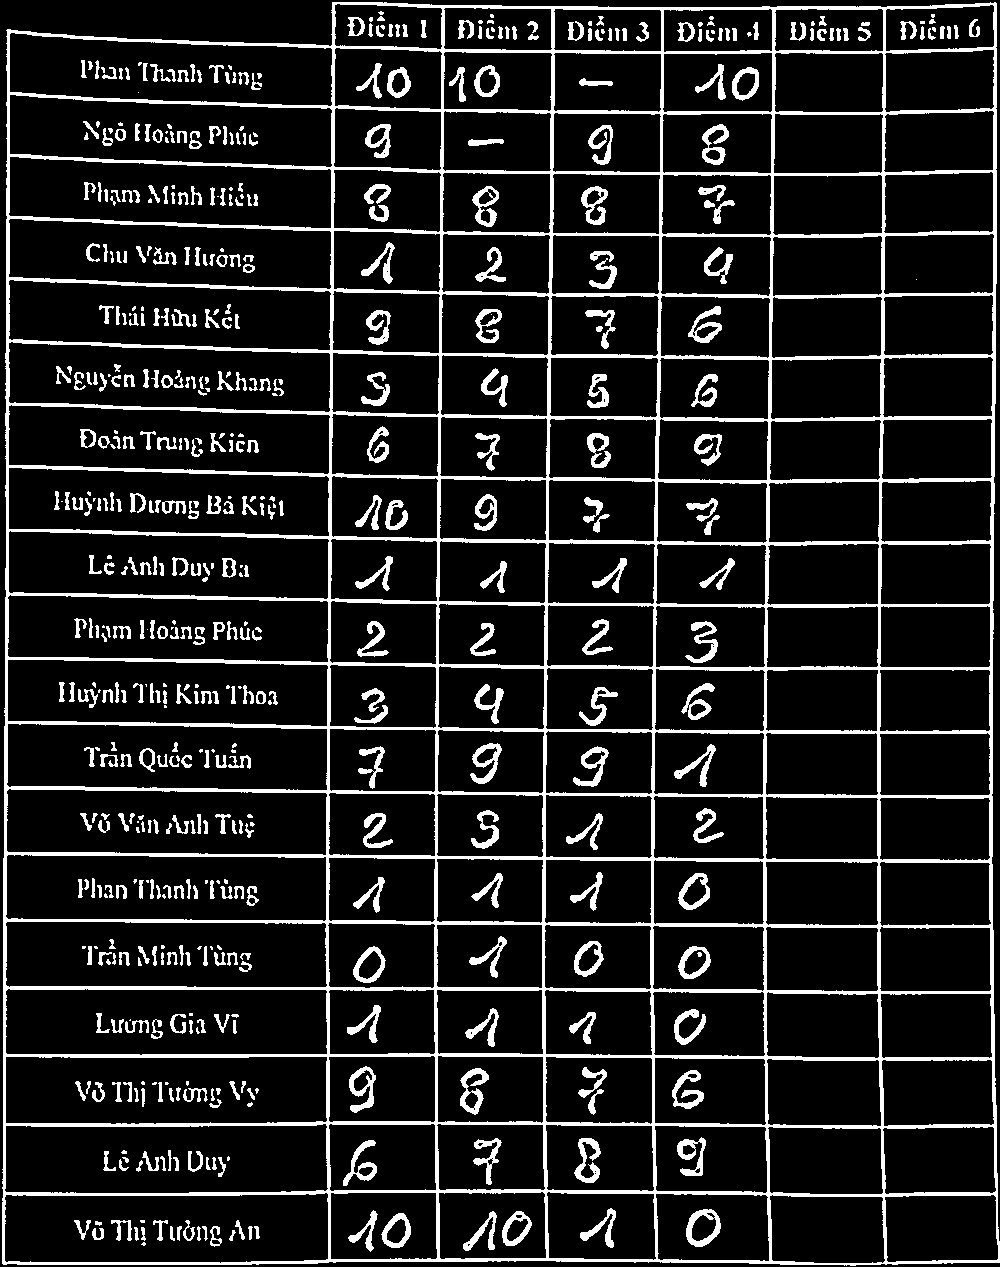 Điểm 1 Điểm 2 Điểm 3 Điểm 4 Điểm 5 Điểm 6
Phan Thanh Tùng 10 10 - 10
Ngô Hoàng Phúc 9 - 9 8
Phạm Minh Hiếu 8 8 8 7
Chu Văn Hưởng 1 2 3 4
Thái Hữu Kết 9 8 7 6
Nguyễn Hoàng Khang 3 4 5 6
Đoàn Trung Kiên 6 7 8 9
Huỳnh Dương Bá Kiệt 10 9 7 7
Lê Anh Duy Ba 1 1 1 1
Phạm Hoàng Phúc 2 2 2 3
Huỳnh Thị Kim Thoa 3 4 5 6
Trần Quốc Tuấn 7 9 9 1
Võ Văn Anh Tuệ 2 3 1 2
Phan Thanh Tùng 1 1 1 0
Trần Minh Tùng 0 1 0 0
Lương Gia Vĩ 1 1 1 0
Võ Thị Tường Vy 9 8 7 6
Lê Anh Duy 6 7 8 9
Võ Thị Tường An 10 10 1 0